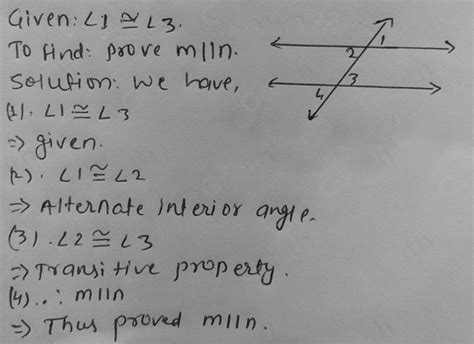 Given: ∠1 ≅ ∠3.
To Find: prove m||n.
Solution: We have,
(1). ∠1 ≅ ∠3
⇒ given.
(2). ∠1 ≅ ∠2
⇒ Alternate interior angle.
(3). ∠2 ≅ ∠3
⇒ Transitive property.
(4). ∴ m||n
⇒ Thus proved m||n.
1
2
3
4